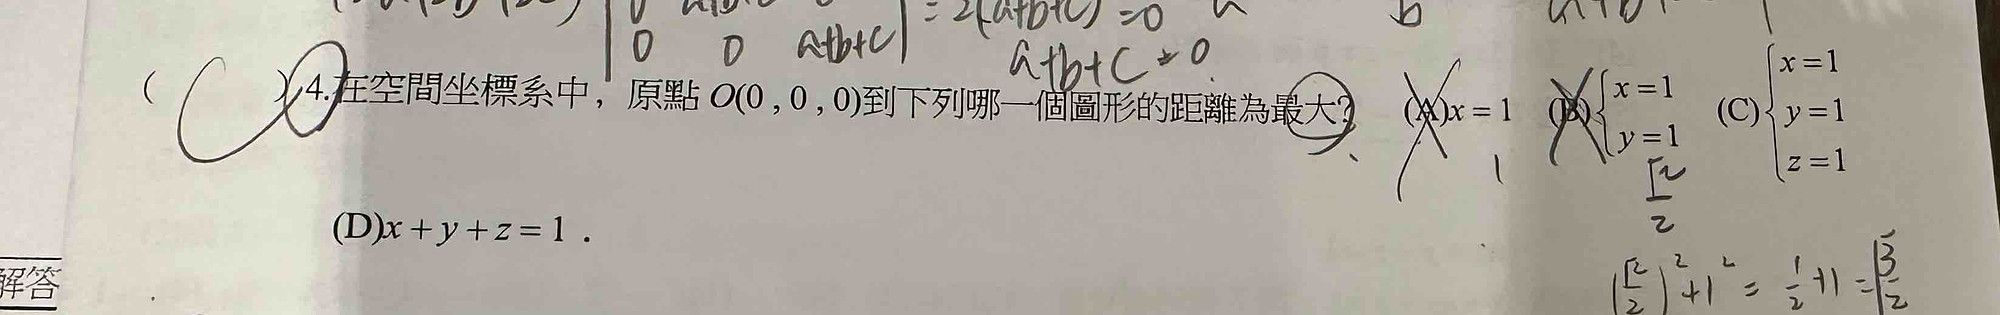 0 0 a+b+c = 2(a+b+c) = 0 a b
a+b+c = 0
( C ) 4.在空間坐標系中，原點 O(0 , 0 , 0)到下列哪一個圖形的距離為最大? (A)x = 1 (B){x = 1 y = 1 (C){x = 1 y = 1 z = 1
1 √2/2
(D)x + y + z = 1 .
解答 (√2/2)² + 1² = 1/2 + 1 = √3/2